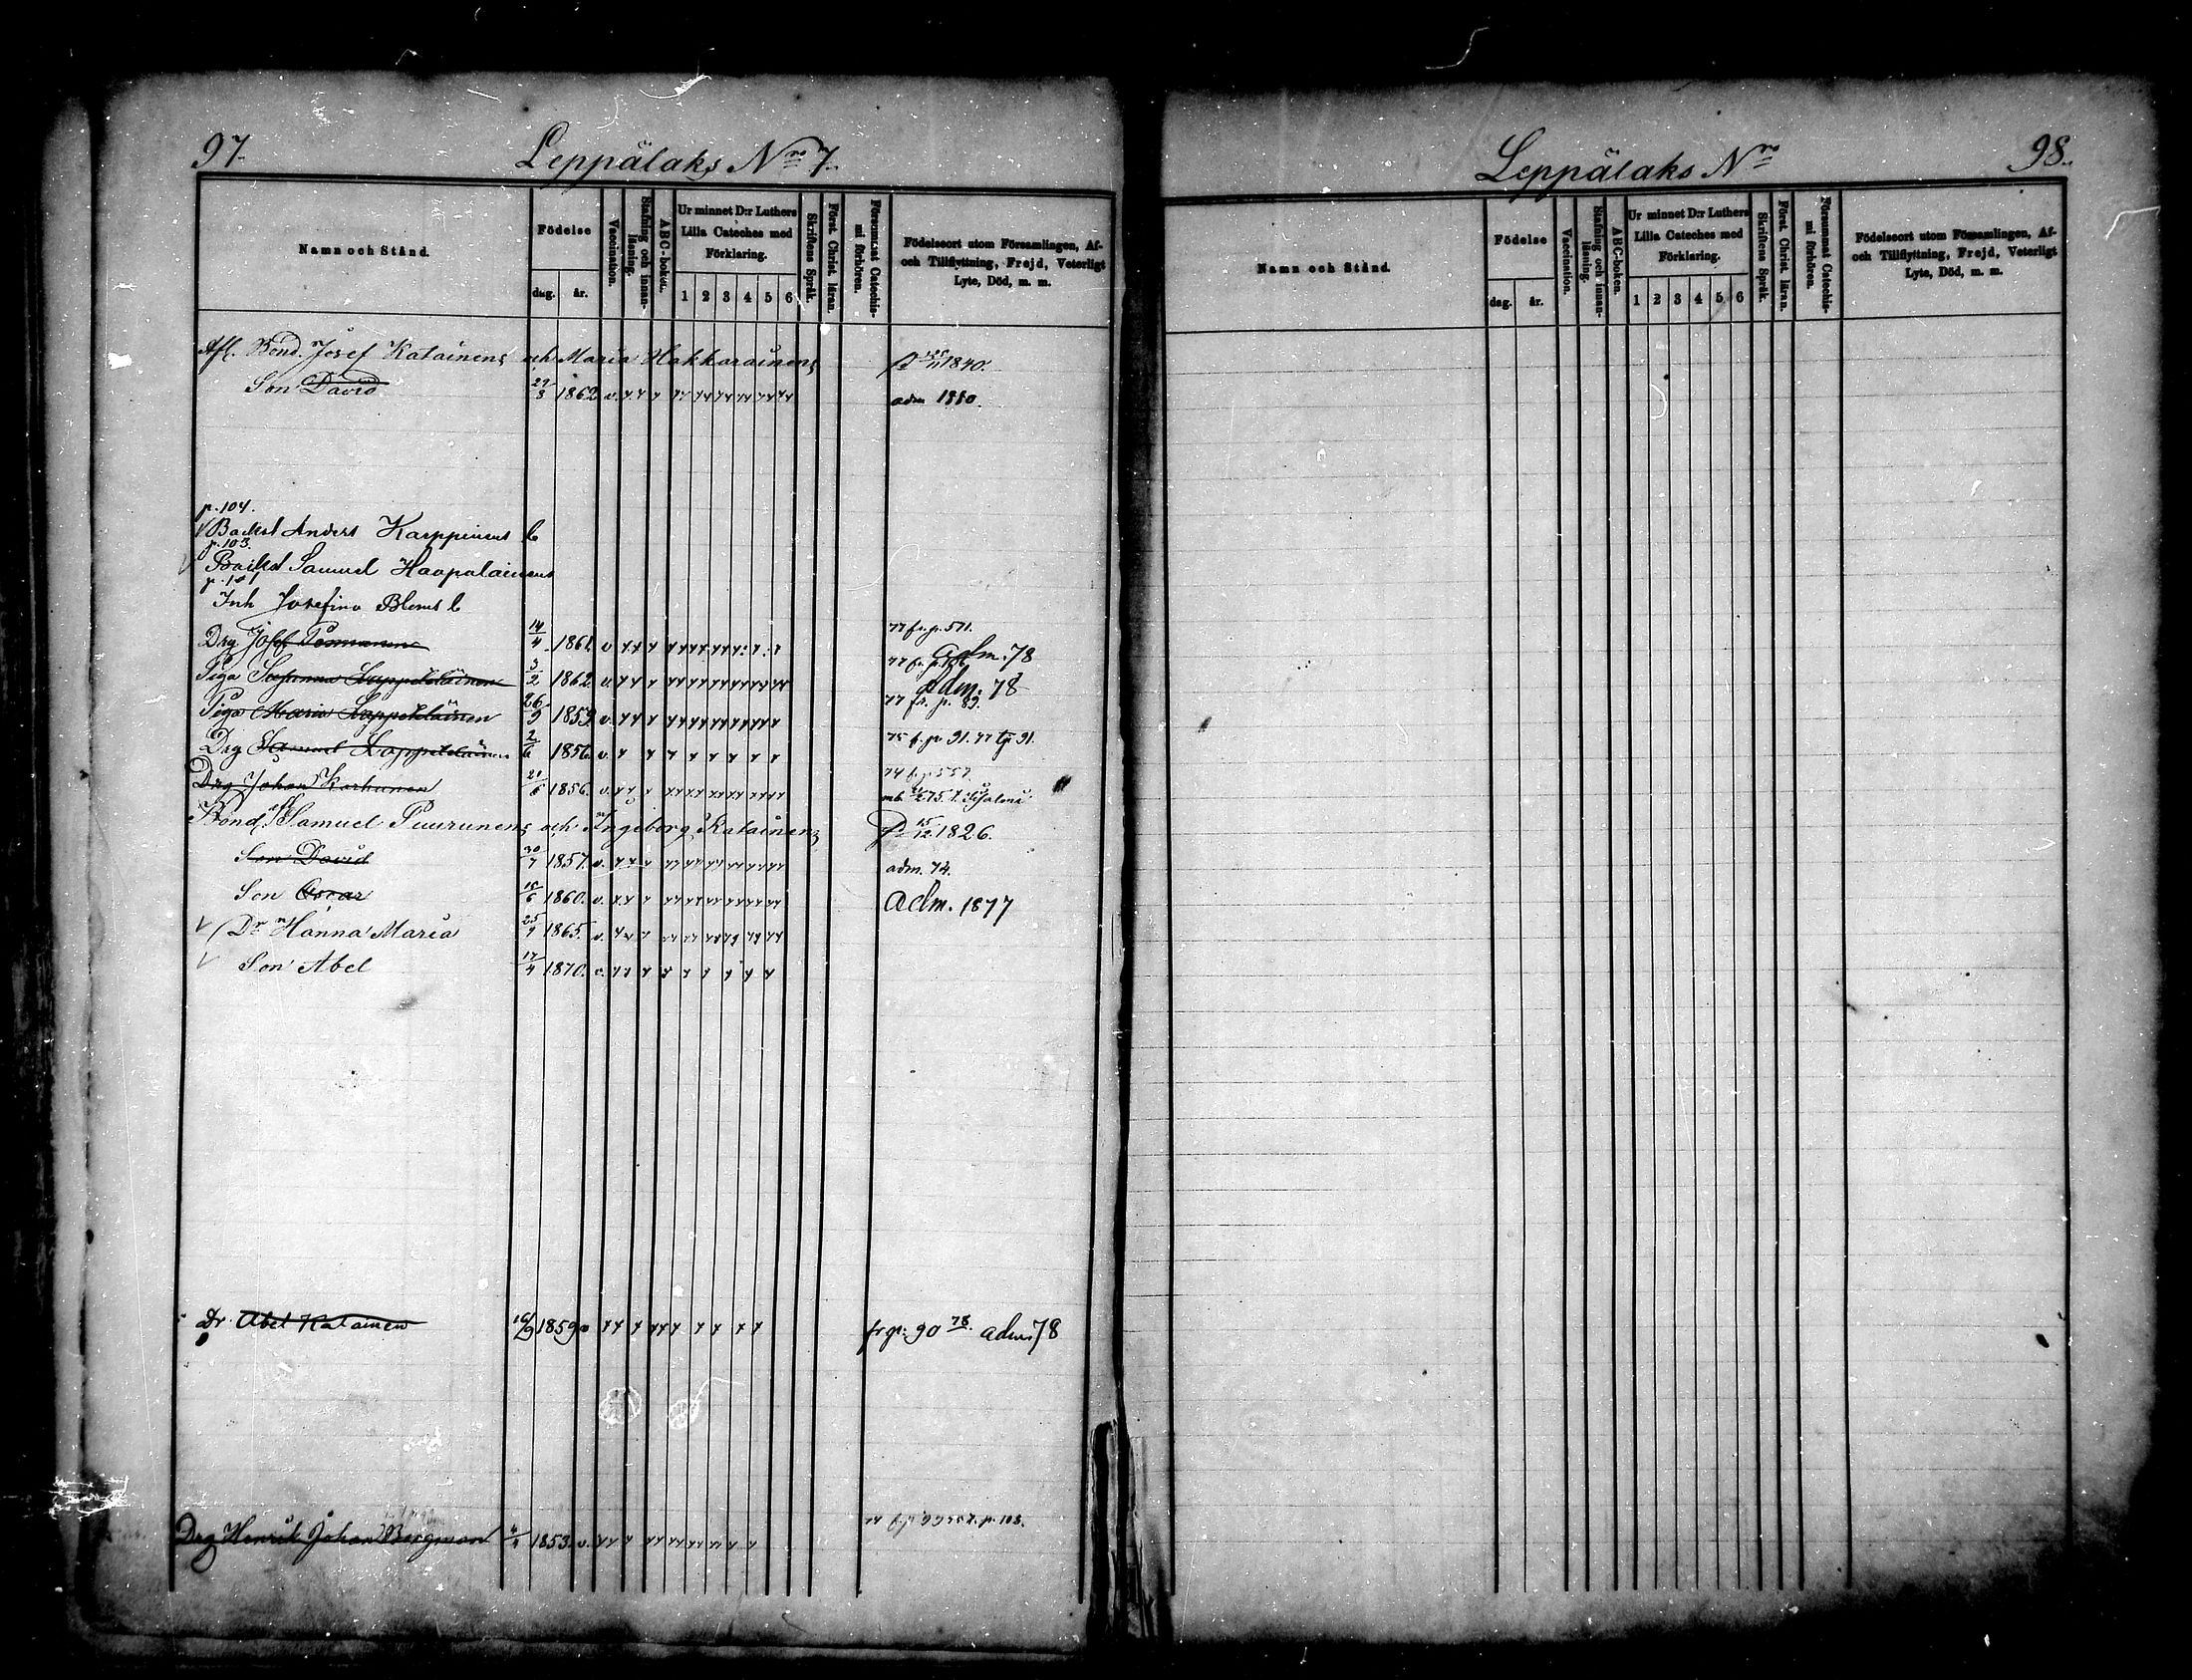 97. Leppälaks Nro 7.
Namn och Stånd.
Födelse
dag. år.
Vaccination.
Stafning och innan-läsning.
ABC-boken.
Ur minnet D:r Luthers
Lilla Cateches med
Förklaring.
1 2 3 4 5 6
Skriftens Språk.
Först. Christ. läran.
Försummat Catechis-mi förhören.
Födelseort utom Församlingen, Af-
och Tillflyttning, Frejd, Veterligt
Lyte, Död, m. m.
Afl. Bond. Josef Katainens och Maria Hakkarainens 11 1840.
Son David 29/3 1862 v. adm 1880.
p. 104.
Backst Anders Karppinens b
p. 103.
Backst Samuel Haapalainens
p. 101
Inh Josefina Bloms b
Drg Josef 14/4 1861. v 77 fr. p. 571. adm. 78
Piga Susanna Lappeteläinen 3/2 1862. v. 77 fr. p. adm. 78
Piga Maria Lappeteläinen 26/9 1859. v. 77 fr. p. 89.
Drg Samuel Lappeteläinen 2/6 1856. v. 75 f. p. 91. 77 t p 91.
Drg Johan Korhonen 21/6 1856. v. 74 f. p. 557.
mb 75. t. Idisalmi
Bond. afl. Samuel Puurunens och Ingeborg Katainens 15/12 1826.
Son David 30/7 1857. v. adm. 74.
Son Oscar 15/6 1860. v. adm. 1877
Dr Hanna Maria 25/9 1865. v.
Son Abel 17/4 1870. v.
Dr. Abel Katainen 16/9 1859 v fr p: 90 78. adm 78
Drg Henrik Johan Bergman 4/4 1853. v. p. 108.
Leppälaks Nro 98.
Namn och Stånd.
Födelse
dag. år.
Vaccination.
Stafning och innan-läsning.
ABC-boken.
Ur minnet D:r Luthers
Lilla Cateches med
Förklaring.
1 2 3 4 5 6
Skriftens Språk.
Först. Christ. läran.
Försummat Catechis-mi förhören.
Födelseort utom Församlingen, Af-
och Tillflyttning, Frejd, Veterligt
Lyte, Död, m. m.